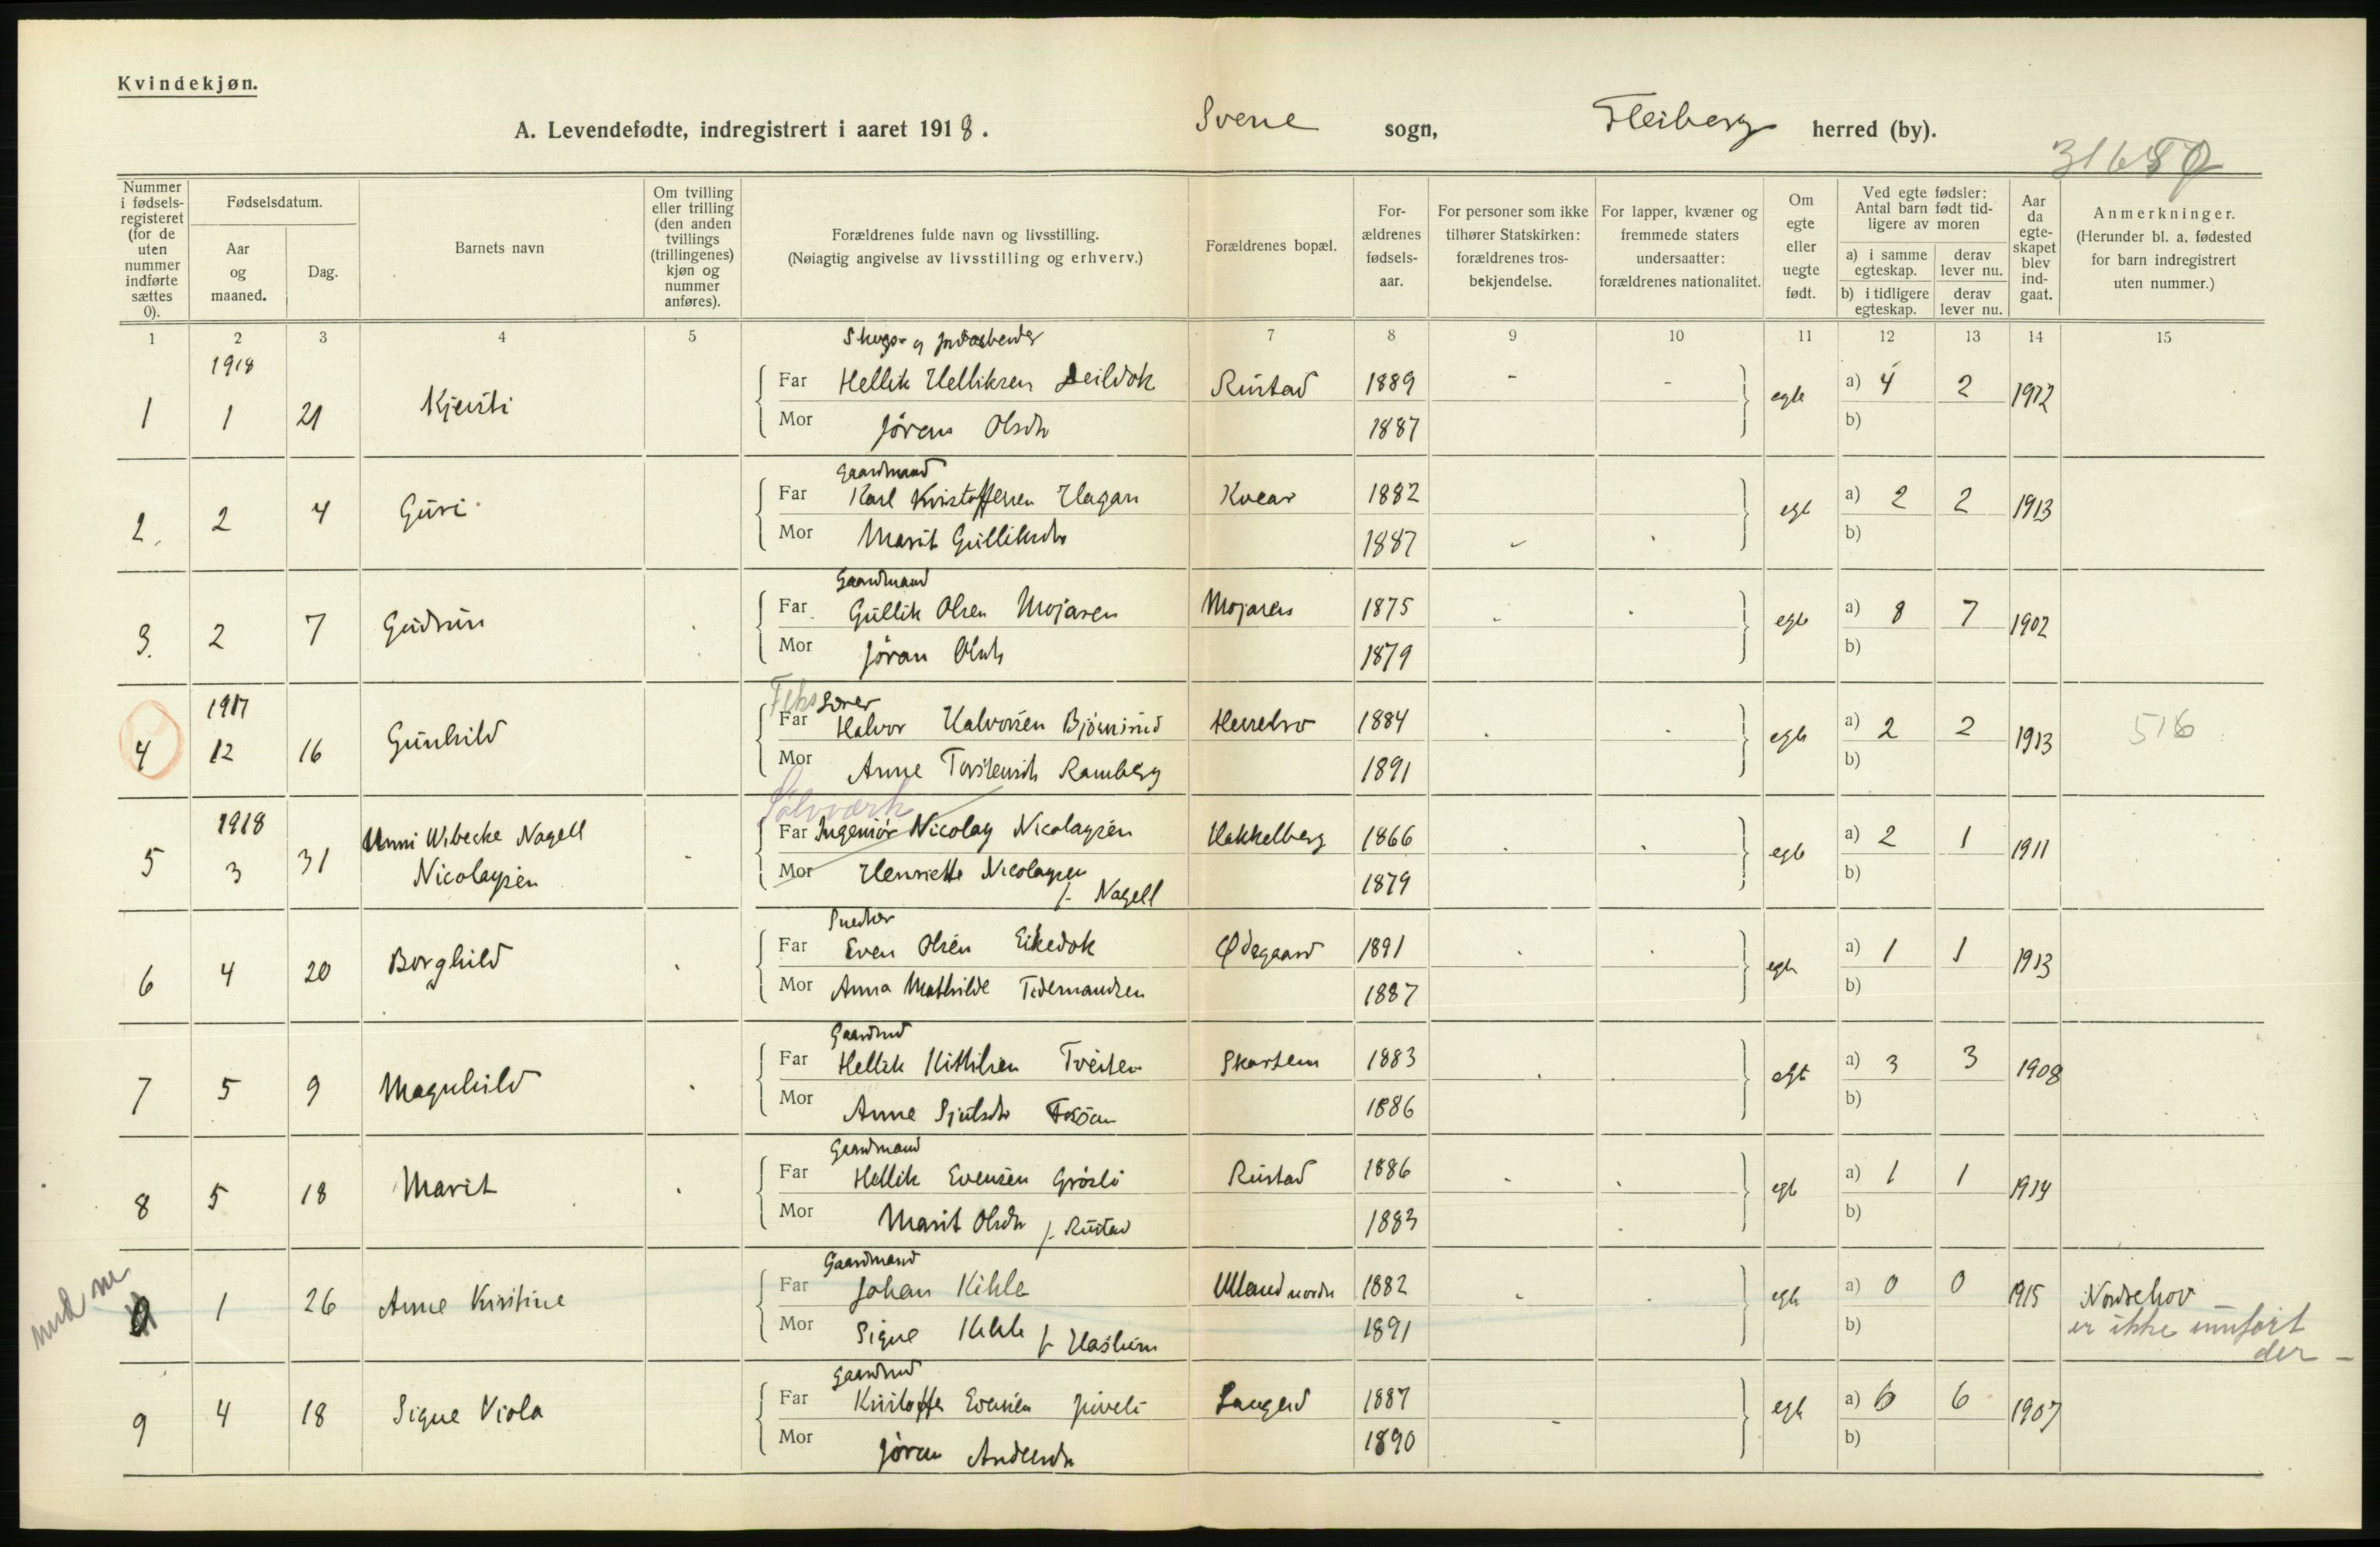 Kvindekjøn.
A. Levendefødte, indregistrert i aaret 1918. Svene sogn, Flesberg herred (by).
Nummer i fødselsregisteret (for de uten nummer indførte sættes 0).
Fødselsdatum.
Aar og maaned.
Dag.
Barnets navn
Om tvilling eller trilling (den anden tvillings (trillingenes) kjøn og nummer anføres).
Forældrenes fulde navn og livsstilling.
(Nøiagtig angivelse av livsstilling og erhverv.)
Forældrenes bopæl.
Forældrenes fødselsaar.
For personer som ikke tilhører Statskirken: forældrenes trosbekjendelse.
For lapper, kvæner og fremmede staters undersaatter: forældrenes nationalitet.
Om egte eller uegte født.
Ved egte fødsler: Antal barn født tidligere av moren
a) i samme egteskap. derav lever nu.
b) i tidligere egteskap. derav lever nu.
Aar da egteskapet blev indgaat.
Anmerkninger.
(Herunder bl. a. fødested for barn indregistrert uten nummer.)
1 2 3 4 5 7 8 9 10 11 12 13 14 15
1918
1 1 21 Kjersti
Far Hellik Helliksen Rustad 1889 - - egte a) 4 2 1912
Mor Jøran Olsdtr 1887 b)
Gaardmand
2. 2 4 Guri Far Karl Kristoffersen Hagan 1882 egt a) 2 2 1913
Mor Marit Gulliksdtr 1887 b)
Gaardmand
3. 2 7 Gudrun Far Gullik Olsen Mojaren Mojaren 1875 egte a) 8 7 1902
Mor Jøran Olsdtr 1879 b)
1917
4 12 16 Gunhild Far Halvor Halvorsen Bjørnsrud 1884 egte a) 2 2 1913 516
Mor Anne Torstensdtr Ramberg 1891 b)
Sølvværk
1918
5 3 31 Unni Wibecke Nagell Nicolaysen
Far Ingeniør Nicolay Nicolaysen Hakkelberg 1866 egte a) 2 1 1911
Mor Henriette Nicolaysen f. Nagell 1879 b)
Snedker
6 4 20 Borghild Far Even Olsen Eikedok Ødegaard 1891 egte a) 1 1 1913
Mor Anna Mathilde Tidemandsen 1887 b)
7 5 9 Magnhild Far Hellik Kittilsen Tveiten 1883 egt a) 3 3 1908
Mor Anne 1886 b)
Gaardmand
8 5 18 Marit Far Hellik Evensen Grøsli Rustad 1886 egte a) 1 1 1914
Mor Marit Olsdtr f. Rustad 1883 b)
Gaardmand
1 26 Anne Kristine Far Johan Kihle 1882 egte a) 0 0 1915 Norderhov
Mor Signe Kihle f. Haslum 1891 b) er ikke innført der -
9 4 18 Signe Viola Far Kristoffer Evensen 1887 egte a) 6 6 1907
Mor Jøran Andersdtr 1890 b)